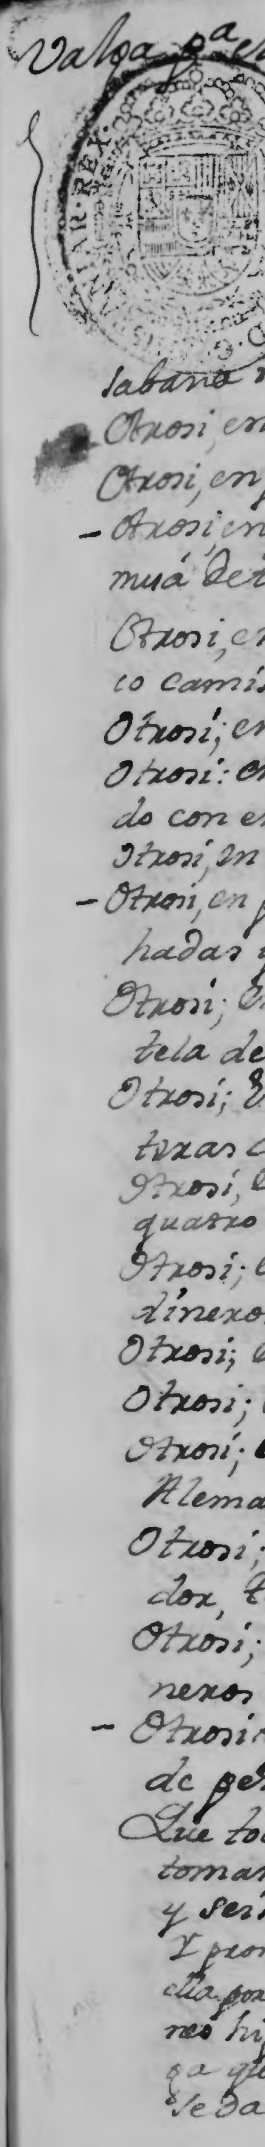 Valga pa el
NIAR·REX·
sabana
Otrosi, en
Otrosi, en
- Otrosi, en
mua de
Otrosi, en
co camis
Otrosi; en
Otrosi: en
do con en
Otrosi, en
- Otrosi, en p
hadas
Otrosi; En
tela de
Otrosi; E
teras
Otrosi, e
quatro
Otrosi; e
dinero
Otrosi;
Otrosi;
Otrosi;
Alema
Otrosi;
dor, t
Otrosi;
neros
- Otrosi
de per
Que to
tomar
y sei
Y pron
ella por
neo hi
ga qu
se da